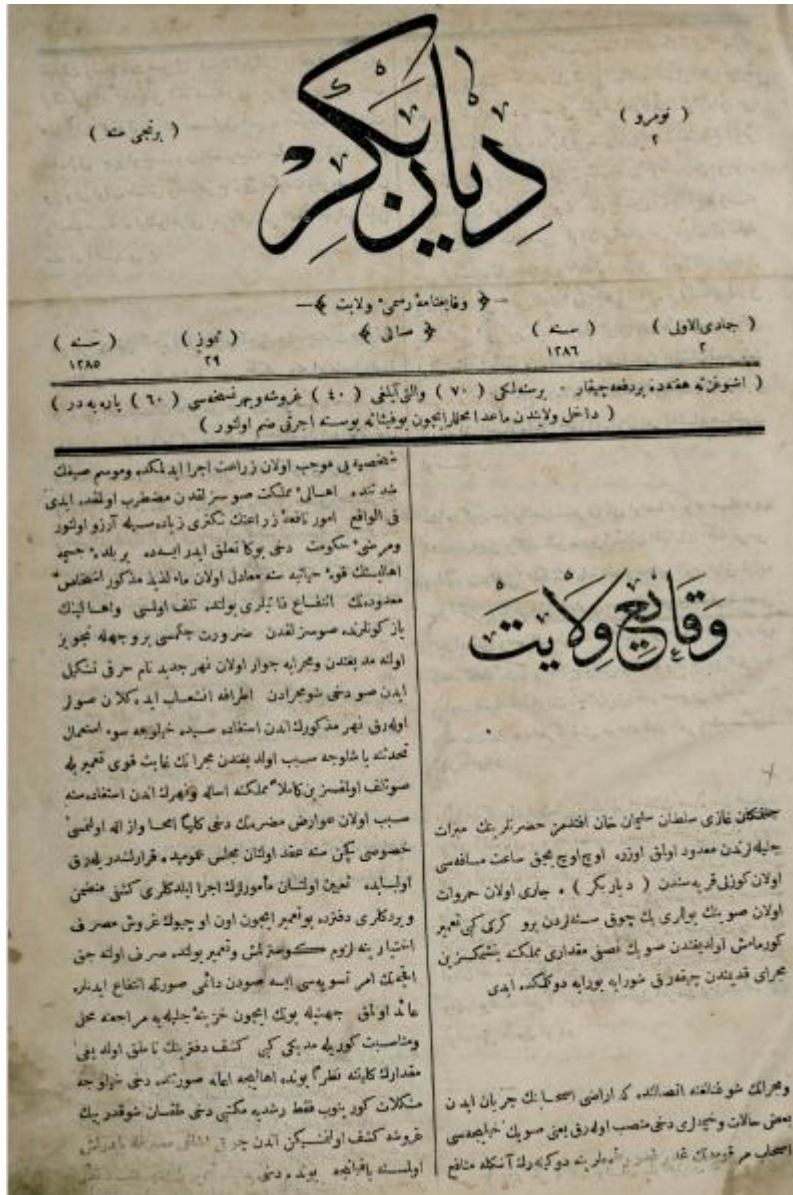 ( نومرو )
٢
ديار بكر
( برنجى سنه )
﴿ وقايعنامهٔ رسمىٔ ولايت ﴾
( جمادى الاولى )
٢
( سنه )
١٢٨٦
﴿ صالى ﴾
( تموز )
٢٩
( سنه )
١٢٨٥
( اشبو غزته هفته ده بر دفعه چيقار - بر سنه لكى ( ٧٠ ) والتى آيلغى ( ٤٠ ) غروشه وبهر نسخه سى ( ٦٠ ) پاره يه در )
( داخل ولايتدن ماعدا محللر ايچون بوفيئاته پوسته اجرتى ضم اولنور )
وَقَايِعِ وِلَايَتْ
جنتمكان غازى سلطان سليمان خان افندمز حضرتلرينك ميرات
جليله لرندن معدود اولمق اوزره اوچ اوچ بچق ساعت مسافه سى
اولان كوزلى قريه سندن ( ديار بكر ) ه جارى اولان حمروات
اولان صوينك يوللرى پك چوق سنه لردن برو كركى كبى تعمير
كورمامش اولديغندن صويك نصفى مقدارى مملكته يتشمكسزين
مجراى قديمندن چيقه رق شورايه بورايه دوكلمكده ايدى
ومجرانك شو شانغنه اتصالنده كه اراضى اصحابنك جريان ايدن
بعض حالات دخى منضم اوله رق يعنى صويك خيليجه سى
اصحاب دوكيله رك آنكله منافع
شخصيه يى موجب اولان زراعت اجرا ايدلمكده وموسم صيفك
شدتنده اهالئ مملكت صوسزلقدن مضطرب اولمقده ايدى
فى الواقع امور نافعهٔ زراعتك تكثرى زياده سيله آرزو اولنور
ومرضئ حكومت دخى بوكا تعلق ايدر ايسه ده بر بلدهٔ جسيمه
اهاليسنك قوهٔ حياتيه سنه معادل اولان ماء لذيذ مذكور اشخاص
معدوده نك انتفاع ذاتيلرى يولنده تلف اولمسى واهالينك
ياز كونلرنده صوسزلقدن ضرورت چكمسى بر وجهله تجويز
اولنه مديغندن ومجرايه جوار اولان نهر جديد نام خرقى تشكيل
ايدن صو دخى شومجرادن اطرافه انشعاب ايده كلان صولر
اوله رق نهر مذكورك اندن استفاده سيده خيلوجه سوء استعمال
تحدثنه باشلوجه سبب اولديغندن مجرانك غايت قوى تعميريله
صو تلف اولقسزين كاملا مملكته اساله ونهرك اندن استفاده سنه
سبب اولان عوارض مضره نك دخى كليا امحا وازاله اولنمسى
خصوصى كچن سنه عقد اولنان مجلس عموميده قرارلشديريله رق
اولبابده تعيين اولنان مأمورلرك اجرا ايلدكلرى كشفى متضمن
ويردكلرى دفترده بوتعمير ايچون اون اوچ يوك غروش مصرف
اختيارينه لزوم كوسترلمش وتعمير يولنده صرف اولنه جق
اقچه نك امر تسويه سى ايسه صودن دائمى صورتله انتفاع ايدنلره
عائد اولمق جهتيله بونك ايچون خزينهٔ جليله يه مراجعته محل
ومناسبت كوريله مديكى كبى كشف دفترينك ناطق اولديغى
مقدارك كليتنه نظراً بونده اهاليجه اعانه صورتنده دخى خيلوجه
مشكلات كورينوب فقط رشديه مكتبى دخى طقسان شوقدر بيك
غروشه كشف اولنمسيكن اندن
اولسنه